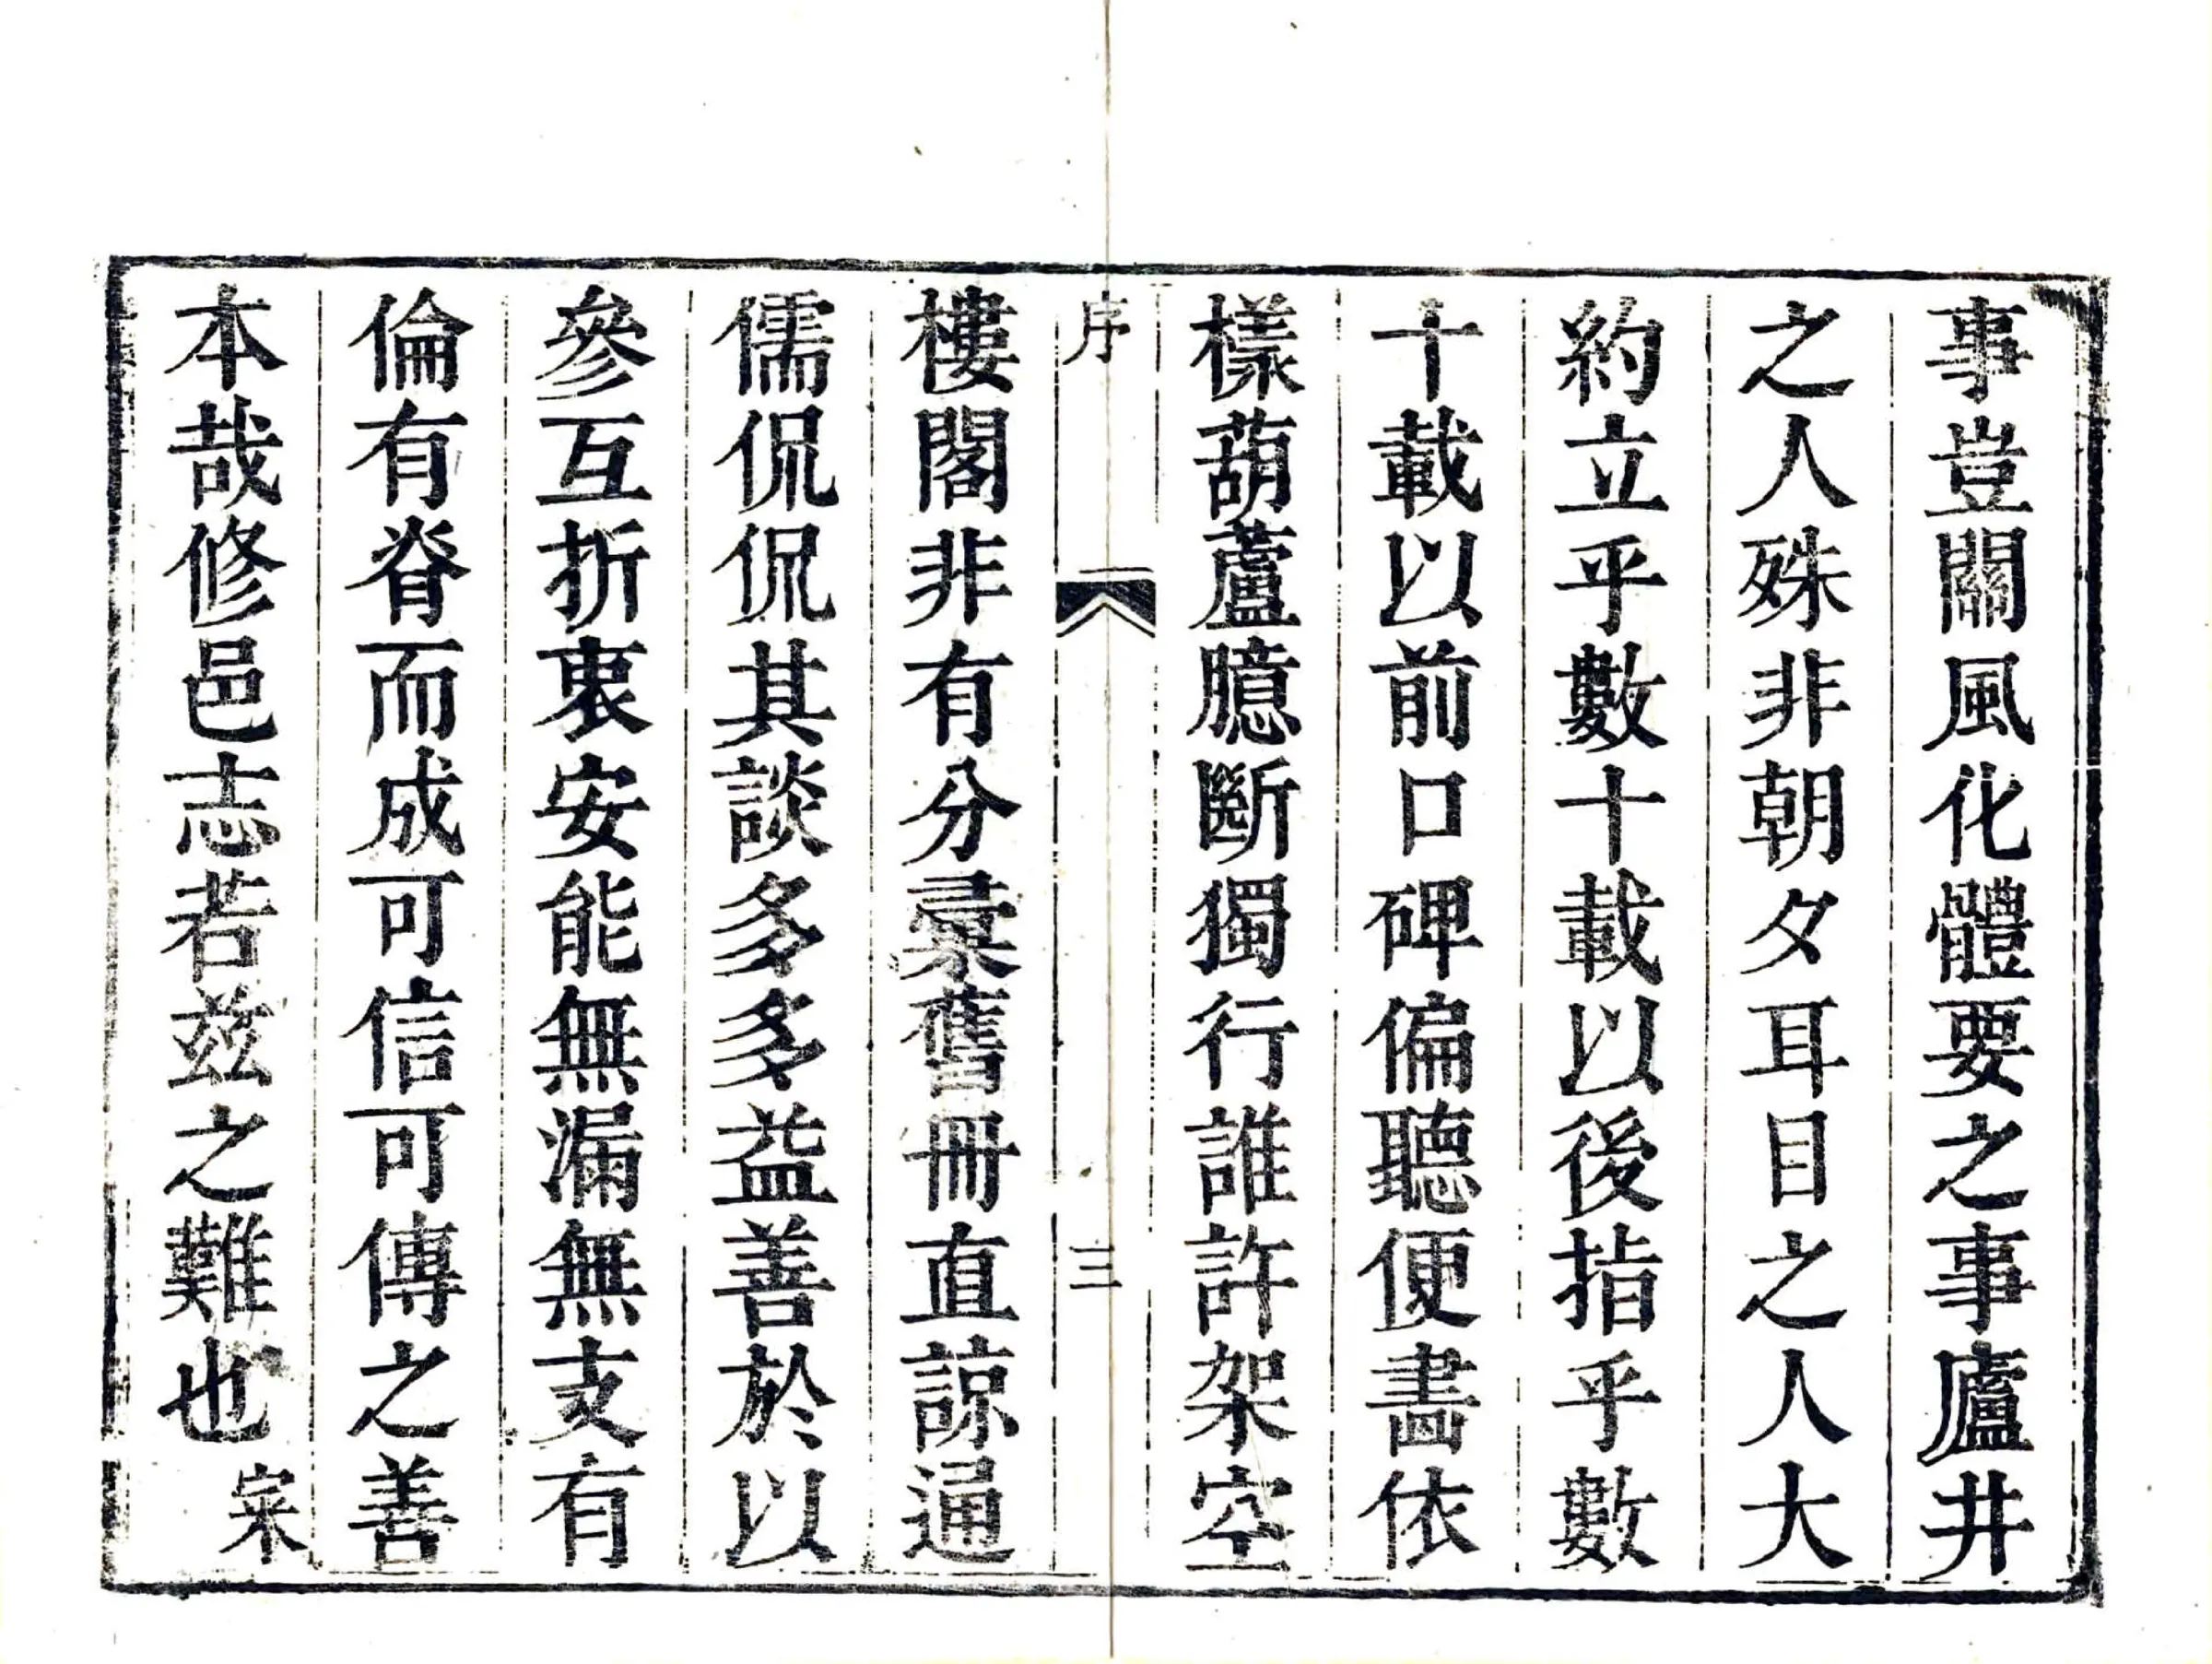 事豈關風化體要之事廬井
之人殊非朝夕耳目之人大
約立乎數十載以後指乎數
十載以前口碑偏聽便畵依
樣葫蘆臆斷獨行誰許架空
序 三
樓閣非有分彙舊冊直諒通
儒侃侃其談多多益善於以
參互折衷安能無漏無支有
倫有脊而成可信可傳之善
本哉修邑志若茲之難也 寀